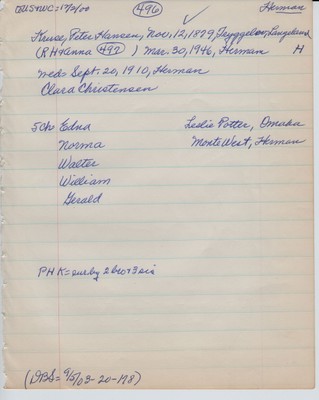 496 Herman
Kruse, Peter Hansen, Nov. 12, 1879, Langeland
(RH Kenna 497) Mar. 30, 1946, Herman H
med= Sept. 20, 1910, Herman
Clara Christensen
5ch= Edna Leslie Potter, Omaha
Norma Monte West, Herman
Walter
William
Gerald
PHK= sur by 2 bro + 3 sis
(DBS= 9/5/03-20-178)